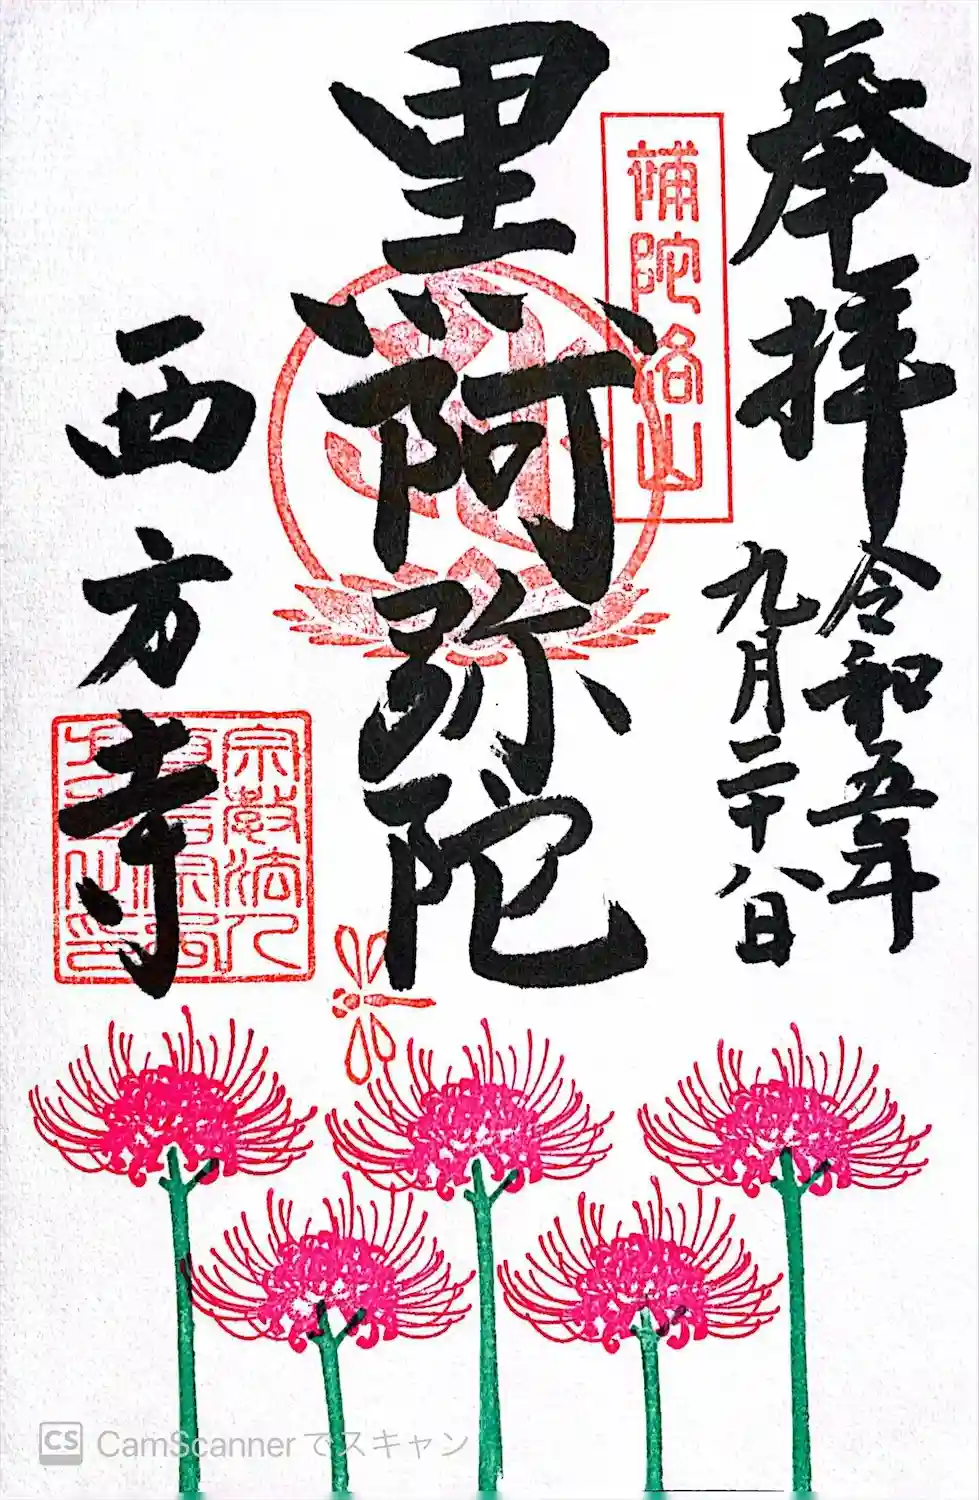 奉拝
令和五年
九月二十八日
補陀洛山
黒阿弥陀
西方寺
宗教法人
CS CamScannerでスキャン